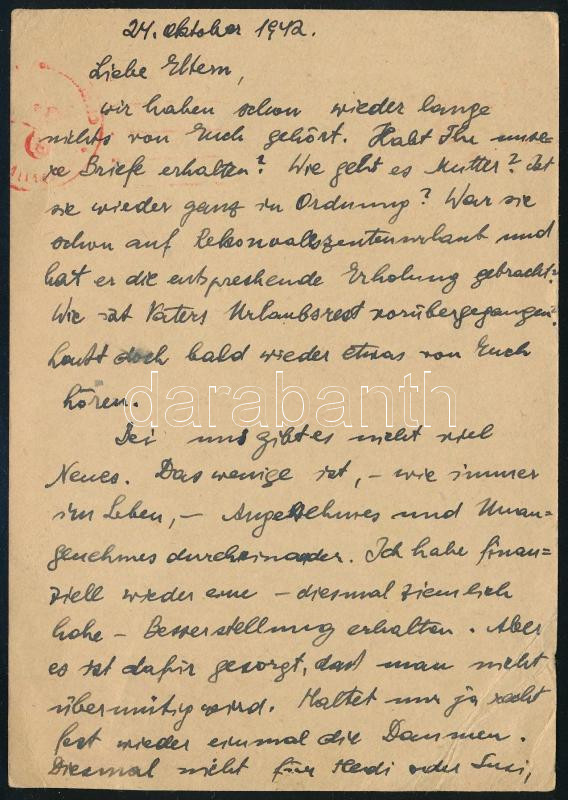 24. Oktober 1942.
Liebe Eltern,
wir haben schon wieder lange
nichts von Euch gehört. Habt Ihr unse-
re Briefe erhalten? Wie geht es Mutter? Ist
sie wieder ganz in Ordnung? War sie
schon auf Rekonvaleszentenurlaub und
hat er die entsprechende Erholung gebracht?
Wie ist Vaters Urlaubsrest vorübergegangen?
Lasst doch bald wieder etwas von Euch
hören.
darabanth
Bei uns gibt es nicht viel
Neues. Das wenige ist, - wie immer
im Leben, - Angenehmes und Unan-
genehmes durcheinander. Ich habe finan-
ziell wieder eine - diesmal ziemlich
hohe - Besserstellung erhalten. Aber
es ist dafür gesorgt, dass man nicht
übermütig wird. Haltet nur ja recht
fest wieder einmal die Daumen.
Diesmal nicht für Hedi oder Susi,